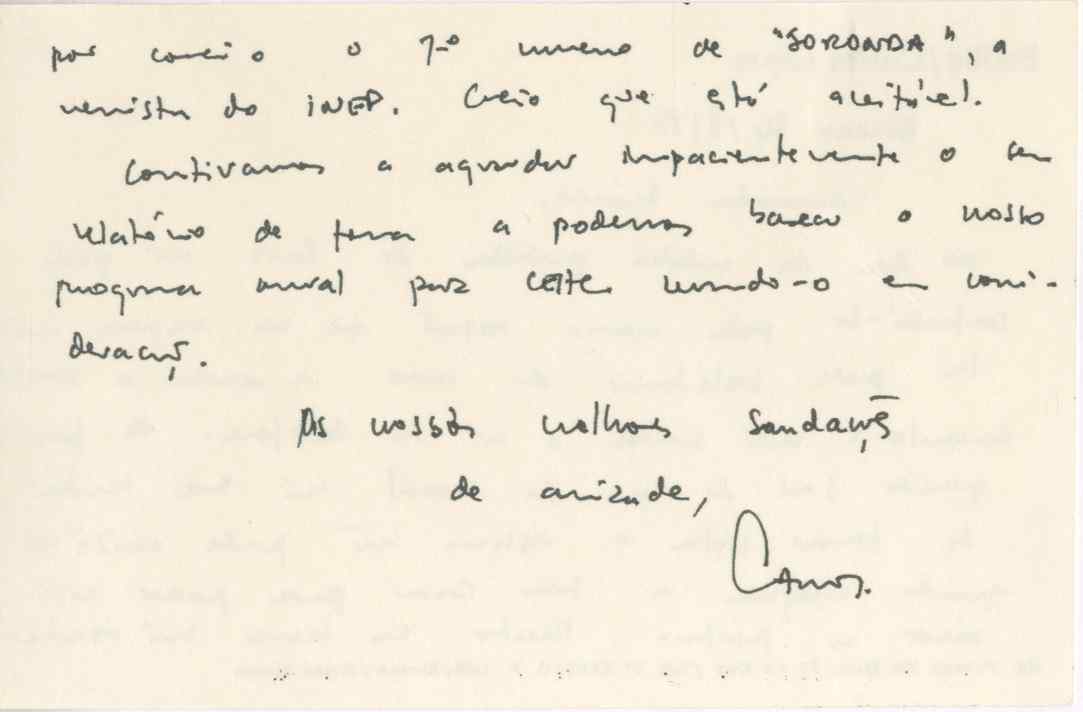 por correio o 1º número de "SORONDA", a
revista do INEP. Creio que está aceitável.
Continuamos a aguardar impacientemente o seu
relatório de forma a podermos basear o nosso
programa anual para este levando-o em consi-
deração.
As nossas melhores saudações
de amizade,
Carlos.